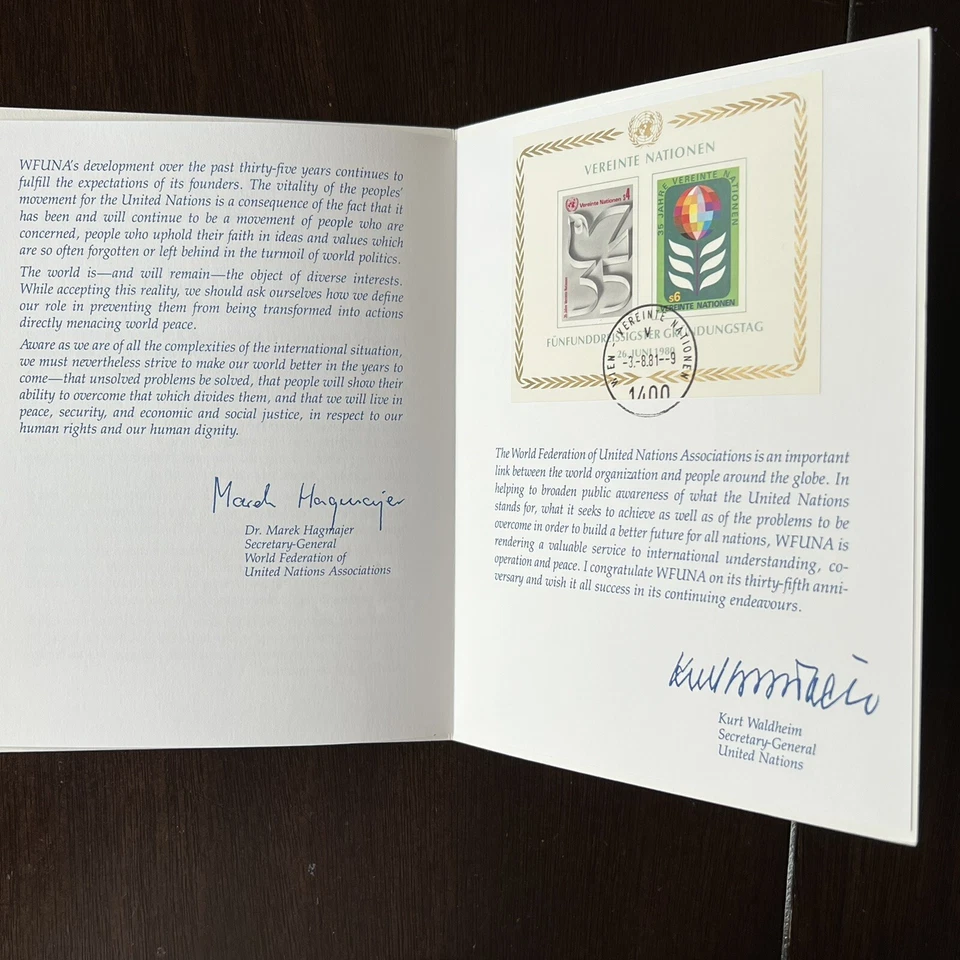 WFUNA's development over the past thirty-five years continues to
fulfill the expectations of its founders. The vitality of the peoples'
movement for the United Nations is a consequence of the fact that it
has been and will continue to be a movement of people who are
concerned, people who uphold their faith in ideas and values which
are so often forgotten or left behind in the turmoil of world politics.
The world is—and will remain—the object of diverse interests.
While accepting this reality, we should ask ourselves how we define
our role in preventing them from being transformed into actions
directly menacing world peace.
Aware as we are of all the complexities of the international situation,
we must nevertheless strive to make our world better in the years to
come—that unsolved problems be solved, that people will show their
ability to overcome that which divides them, and that we will live in
peace, security, and economic and social justice, in respect to our
human rights and our human dignity.
Marek Hagmajer
Dr. Marek Hagmajer
Secretary-General
World Federation of
United Nations Associations
VEREINTE NATIONEN
Vereinte Nationen S4
35
35 Jahre Vereinte Nationen
35 JAHRE VEREINTE NATIONEN
S6
VEREINTE NATIONEN
FÜNFUNDDREISSIGSTER GRÜNDUNGSTAG
26. JUNI 1980
WIEN - VEREINTE NATIONEN
V
-3.-8.81--9
1400
The World Federation of United Nations Associations is an important
link between the world organization and people around the globe. In
helping to broaden public awareness of what the United Nations
stands for, what it seeks to achieve as well as of the problems to be
overcome in order to build a better future for all nations, WFUNA is
rendering a valuable service to international understanding, co-
operation and peace. I congratulate WFUNA on its thirty-fifth anni-
versary and wish it all success in its continuing endeavours.
Kurt Waldheim
Kurt Waldheim
Secretary-General
United Nations